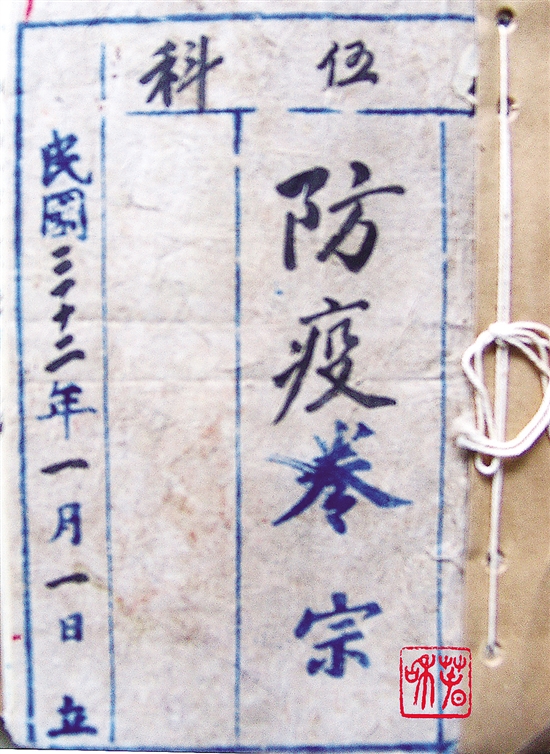 伍科
防疫卷宗
民國三十二年一月一日 立